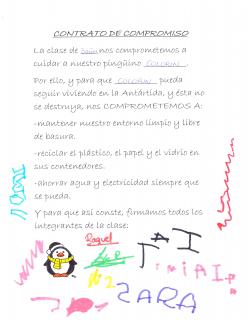 CONTRATO DE COMPROMISO
La clase de nos comprometemos a
cuidar a nuestro pingüino COLORIN.
Por ello, y para que COLORIN pueda
seguir viviendo en la Antártida, y ésta no
se destruya, nos COMPROMETEMOS A:
-mantener nuestro entorno limpio y libre
de basura.
-reciclar el plástico, el papel y el vidrio en
sus contenedores.
-ahorrar agua y electricidad siempre que
se pueda.
Y para que así conste, firmamos todos los
integrantes de la clase:
Raquel
SARA